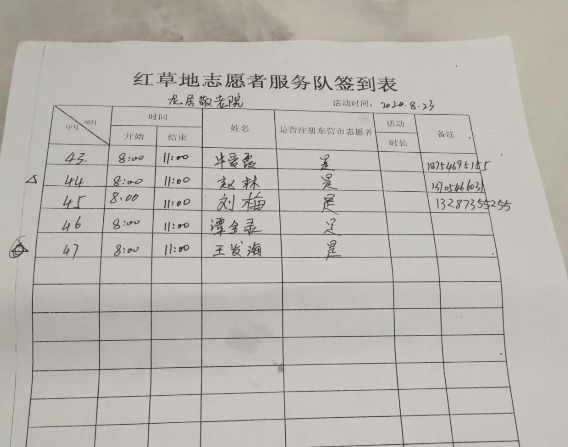 红草地志愿者服务队签到表
龙居敬老院 活动时间：2020.8.23
序号 项目 时间 开始 结束 姓名 是否注册东营市志愿者 活动时长 备注
43. 8:00 11:00 是
44 8:00 11:00 赵林 是
45 8:00 11:00 刘梅 是 13287355255
46 8:00 11:00 谭金录 是
47 8:00 11:00 王发海 是